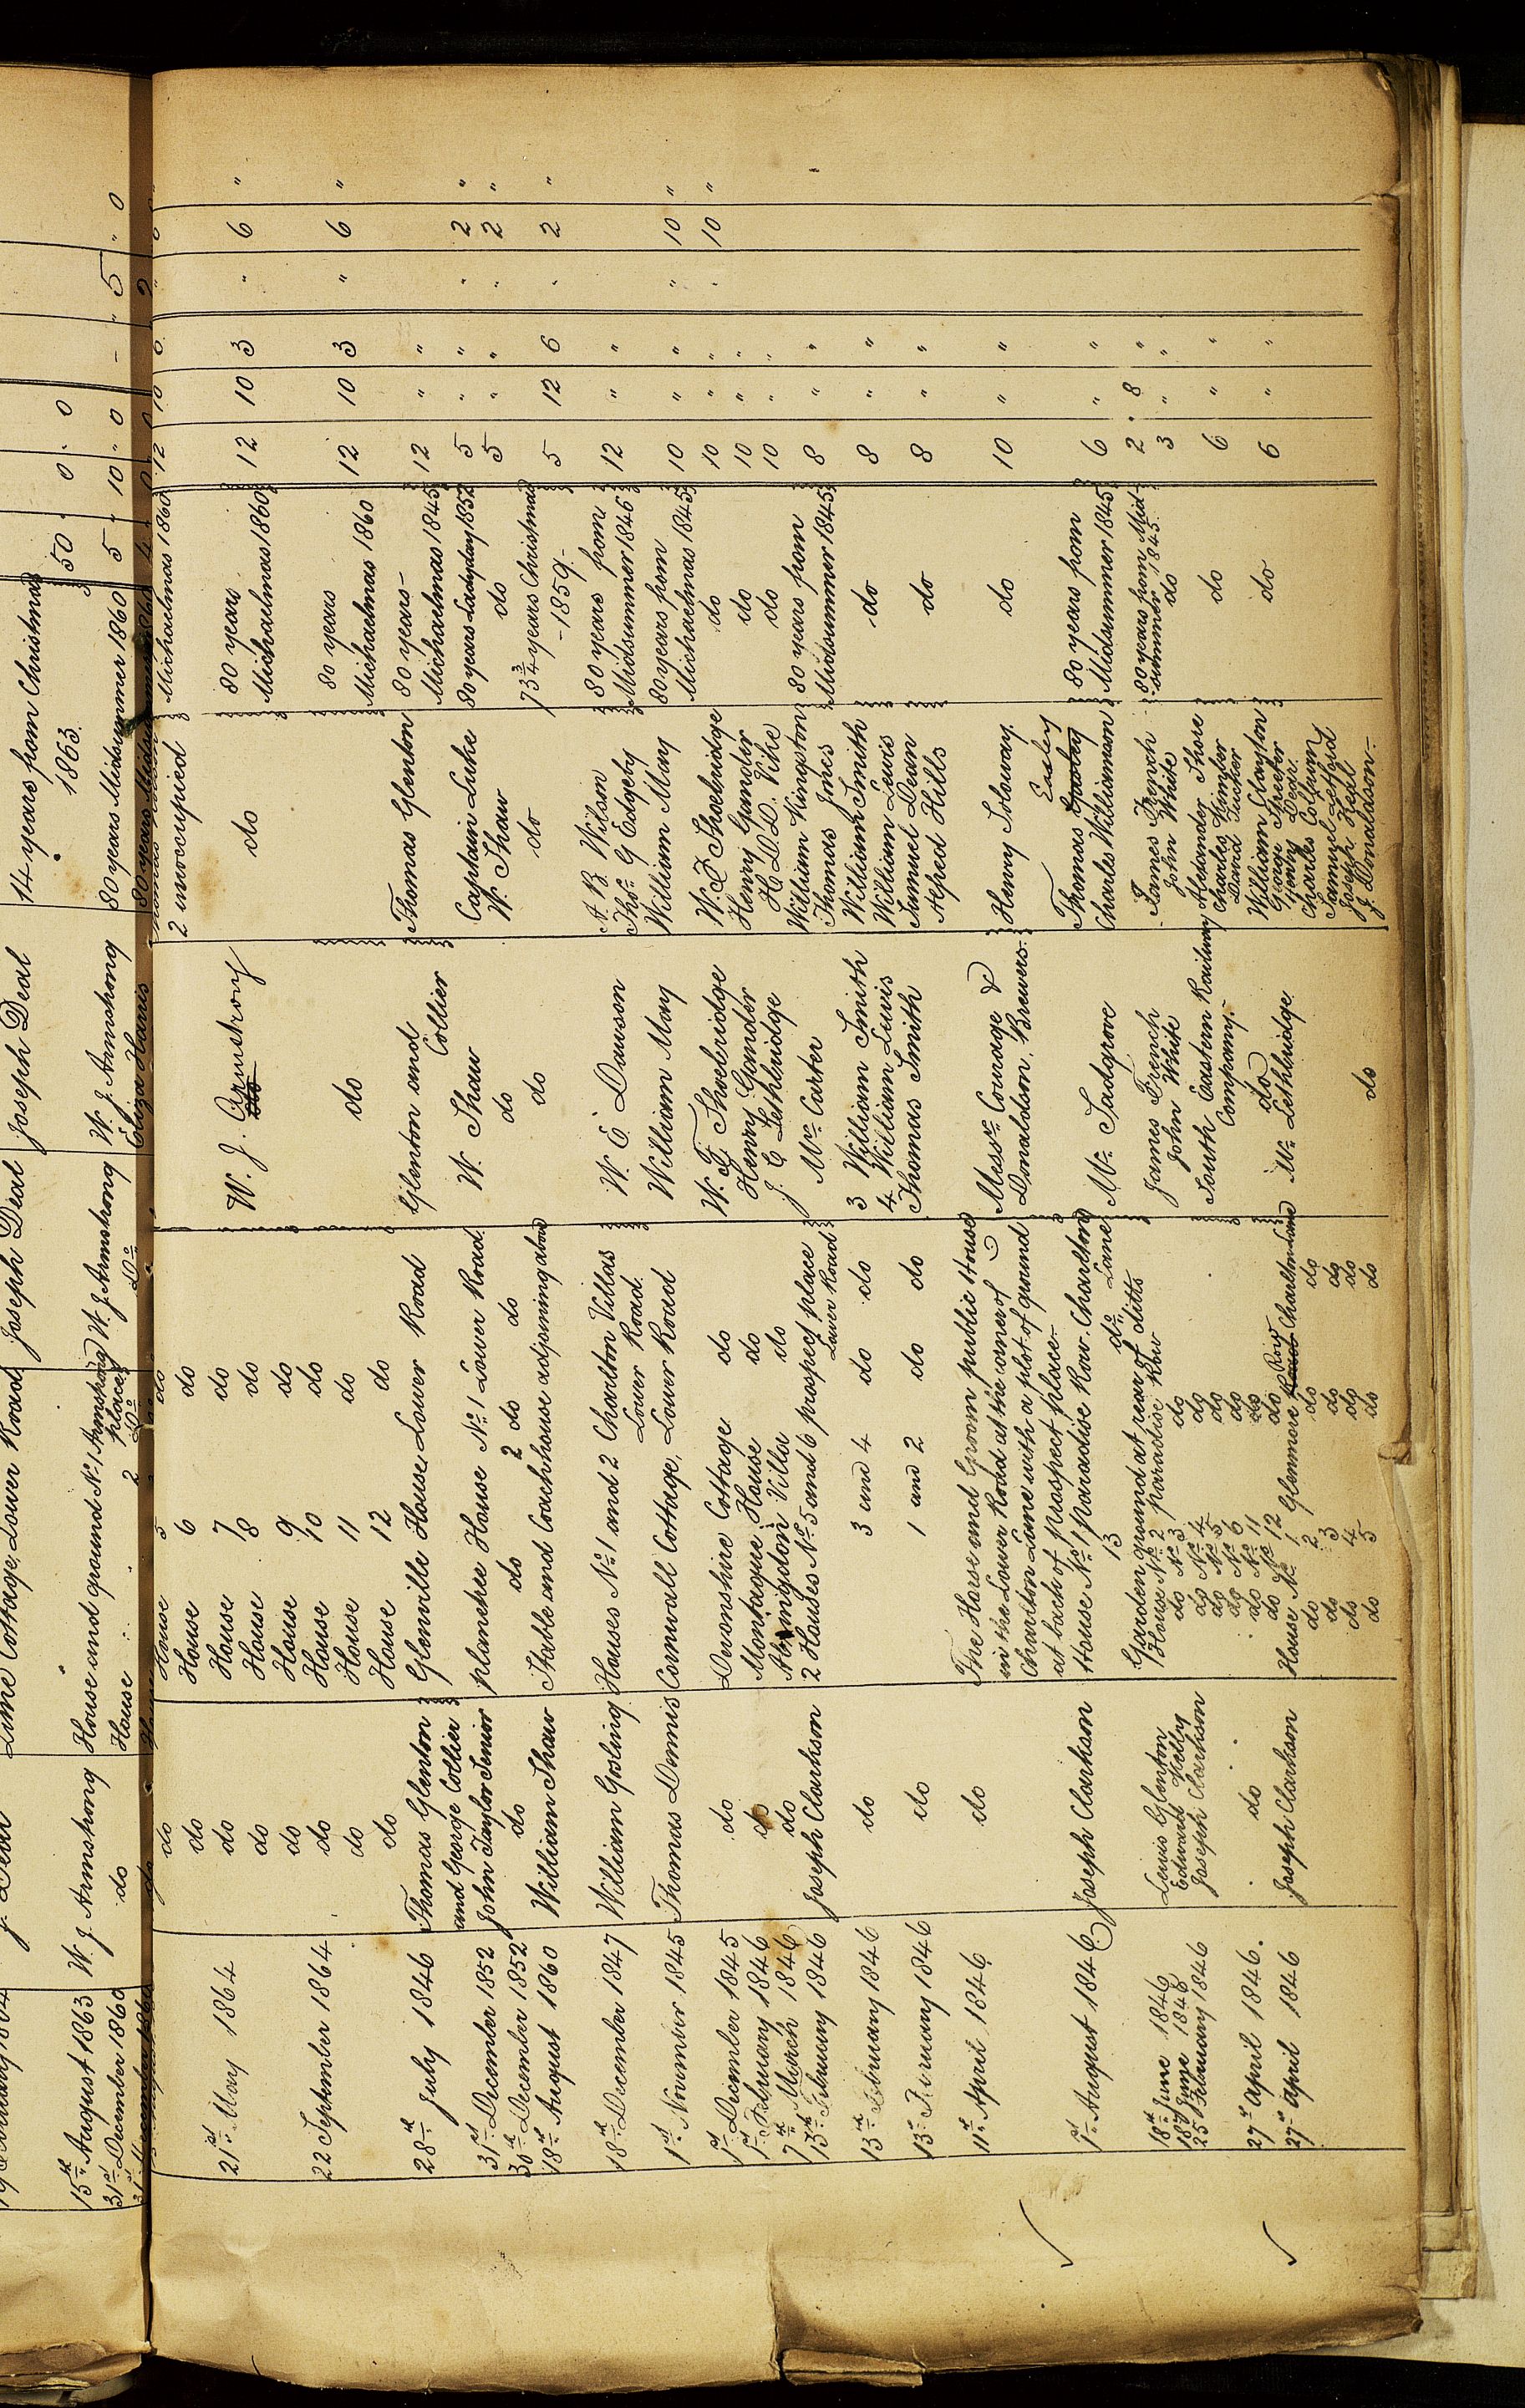 14 years from Christmas 50 " 0 " 0
1863
Lime Cottage, Lower Road Joseph Deal Joseph Deal
15th August 1863 W. J. Armstrong House and ground No. 1 Armstrong place W. J. Armstrong W. J. Armstrong 80 years Midsummer 1860 5 " 10 " 0 – " 5 " 0
31st December 1860 do House 2 Do Do Eliza Harris
do House 5 do 2 unoccupied Michaelmas 1860 12 10 0
do House 6 do
21st May 1864 do House 7 do W. J. Armstrong do 80 years 12 10 3 " 6 "
do House 8 do Michaelmas 1860
do House 9 do
22 September 1864 do House 10 do do 80 years 12 10 3 " 6 "
do House 11 do Michaelmas 1860
do House 12 do
28th July 1846 Thomas Glenton Glenville House Lower Road Glenton and Thomas Glenton 80 years – 12 " "
and George Collier Collier Michaelmas 1845
31st December 1852 John Taylor Senior plumtree House No. 1 Lower Road W. Shaw Captain Luke 80 years Ladyday 1852 5 " " " 2 "
30th December 1852 do do 2 do do do W. Shaw do 5 " " " 2 "
18th August 1860 William Shaw Stable and Coachhouse adjoining above do do 73 3/4 years Christmas 5 12 6 " 2 "
– 1859 –
18th December 1847 William Gosling Houses No. 1 and 2 Charlton Villas W. E. Dawson A. B. Wilson 80 years from 12 " "
Lower Road. Thos. G Edgeby Midsummer 1846
1st November 1845 Thomas Dennis Cornwall Cottage, Lower Road William May William May 80 years from 10 " " " 10 "
Michaelmas 1845
1st December 1845 do Devonshire Cottage do W. F. Shovelridge W. F. Shoebridge do 10 " " " 10 "
1st February 1846 do Montague House do Henry Gander Henry Gander do 10 " "
7th March 1846 do Abingdon Villa do J. C Lethbridge H. D D. Vike do 10 " "
13th February 1846 Joseph Clarkson 2 Houses No. 5 and 6 prospect place Mr. Carter William Kingston 80 years from 8 " "
Lower Road Thomas Jones Midsummer 1845
13th February 1846 do 3 and 4 do do 3 William Smith William Smith do 8 " "
4 William Lewis William Lewis
13th February 1846 do 1 and 2 do do Thomas Smith Samuel Dean do 8 " "
Alfred Hills
11th April 1846 do The Horse and Groom public House Messrs. Courage & Henry Soloway. do 10 " "
in the Lower Road at the corner of Donaldson, Brewers.
Charlton Lane with a plot of ground
at back of prospect place – Easley
1st August 1846 Joseph Clarkson House No. 1 Paradise Row. Charlton Mr. Sadgrove Thomas 80 years from 6 " "
13 do Lane Charles Williamson Midsummer 1845
18th June 1846 Lewis Glenton Garden ground at rear of ditto James French James French 80 years from Mid- 2 " 8 "
18th June 1848 Edward Kelly House No. 2 paradise Row John White John White summer 1845
25 February 1846 Joseph Clarkson do No. 3 do South Eastern Railway Shore do 3 " "
do No. 4 do Company. Charles Kimber
do No. 5 do David Tucker do 6 " "
do No. 6 do
27th April 1846. do do No. 11 do do William Clayton do 6 " "
do No. 12 do George Streeter
27th April 1846 Joseph Clarkson House No. 1 Glenmore Row Charlton Lane Mr. Lethbridge Henry Dear.
do 2 do do Charles Colman
do 3 do do Samuel
do 4 do do Joseph Keel
do 5 do do do J. Donaldson –